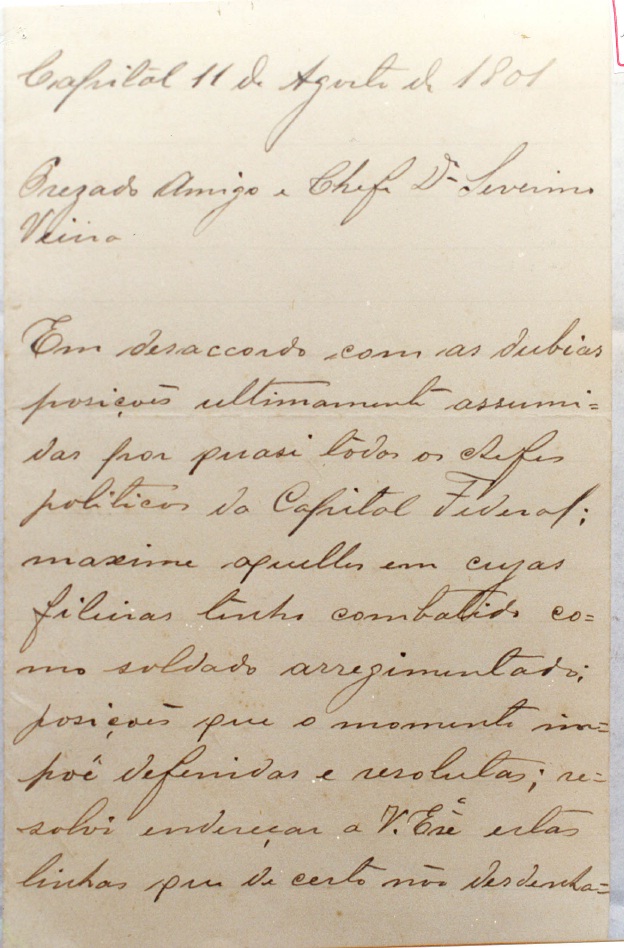 Capital 11 de Agosto de 1901
Prezado Amigo e Chefe Dr. Severino
Vieira
Em desaccordo com as dubias
posições ultimamente assumi=
das por quasi todos os chefes
politicos da Capital Federal;
maxime aquelles em cujas
fileiras tenho combatido co=
mo soldado arregimentado;
posições que o momento im=
põe definidas e resolutas; re=
solvi endereçar a V. Exª estas
linhas que de certo não desdenha=